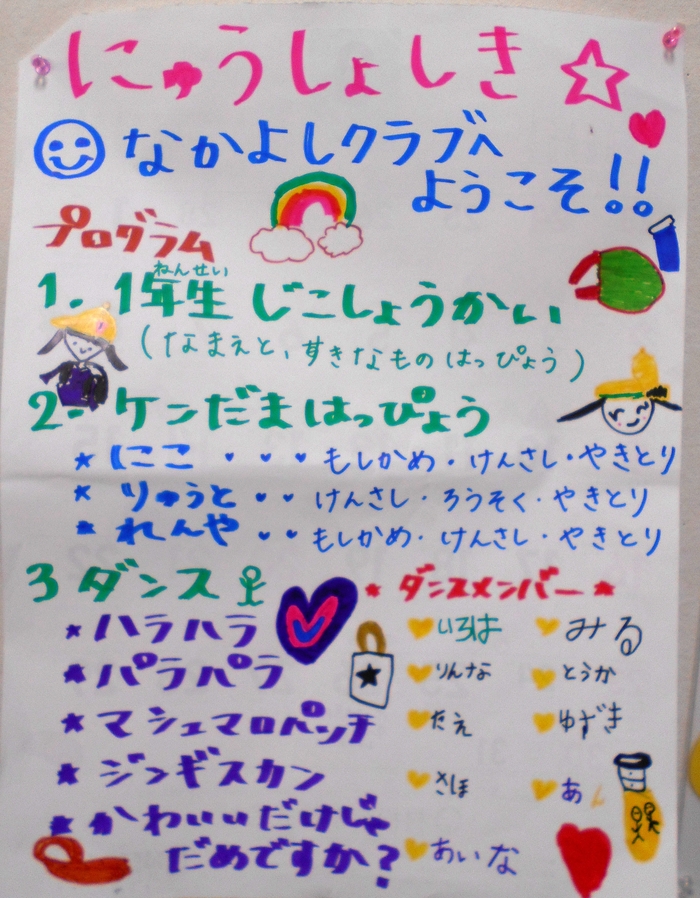 にゅうしょしき
なかよしクラブへ
ようこそ!!
プログラム
ねんせい
1. 1年生 じこしょうかい
(なまえと、すきなもの はっぴょう)
2. ケンだま はっぴょう
にここ・・・もしかめ・けんさし・やきとり
りゅうと・・けんさし・ろうそく・やきとり
れんや・・もしかめ・けんさし・やきとり
3 ダンス
ダンスメンバー
ハラハラ
パラパラ
マシュマロパッチ
ジンギスカン
かわいいだけじゃ
だめですか?
いろは みる
りんな とうか
たえ ゆずき
さほ あん
あいな